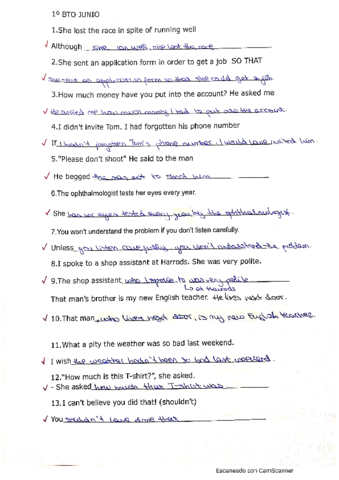 1º BTO JUNIO
1.She lost the race in spite of running well
✓ Although she ran well, she lost the race
2.She sent an application form in order to get a job SO THAT
✓ She sent an application form so that she could get a job
3.How much money have you put into the account? He asked me
✓ He asked me how much money I had to put into the account
4.I didn't invite Tom. I had forgotten his phone number
✓ If I hadn't forgotten Tom's phone number, I would have invited him.
5."Please don't shoot" He said to the man
✓ He begged the man not to shoot him
6.The ophthalmologist tests her eyes every year.
✓ She has her eyes tested every year by the ophthalmologist.
7.You won't understand the problem if you don't listen carefully.
✓ Unless you listen carefully, you won't understand the problem.
8.I spoke to a shop assistant at Harrods. She was very polite.
✓ 9.The shop assistant who I spoke to was very polite
at Harrods
That man's brother is my new English teacher. He lives next door.
✓ 10.That man, who lives next door, is my new English teacher.
11.What a pity the weather was so bad last weekend.
✓ I wish the weather hadn't been so bad last weekend.
12."How much is this T-shirt?", she asked.
✓ - She asked how much that T-shirt was
13.I can't believe you did that! (shouldn't)
✓ You shouldn't have done that
Escaneado con CamScanner